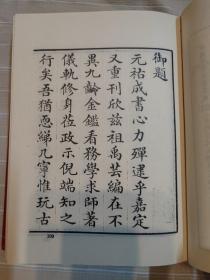 御題
元祐成書心力殫逮乎嘉定
又重刊欣兹祖禹芸編在不
異九齡金鑑看務學求師著
儀軌修身莅政示倪端知之
行矣吾猶恧綈几寧惟玩古
300